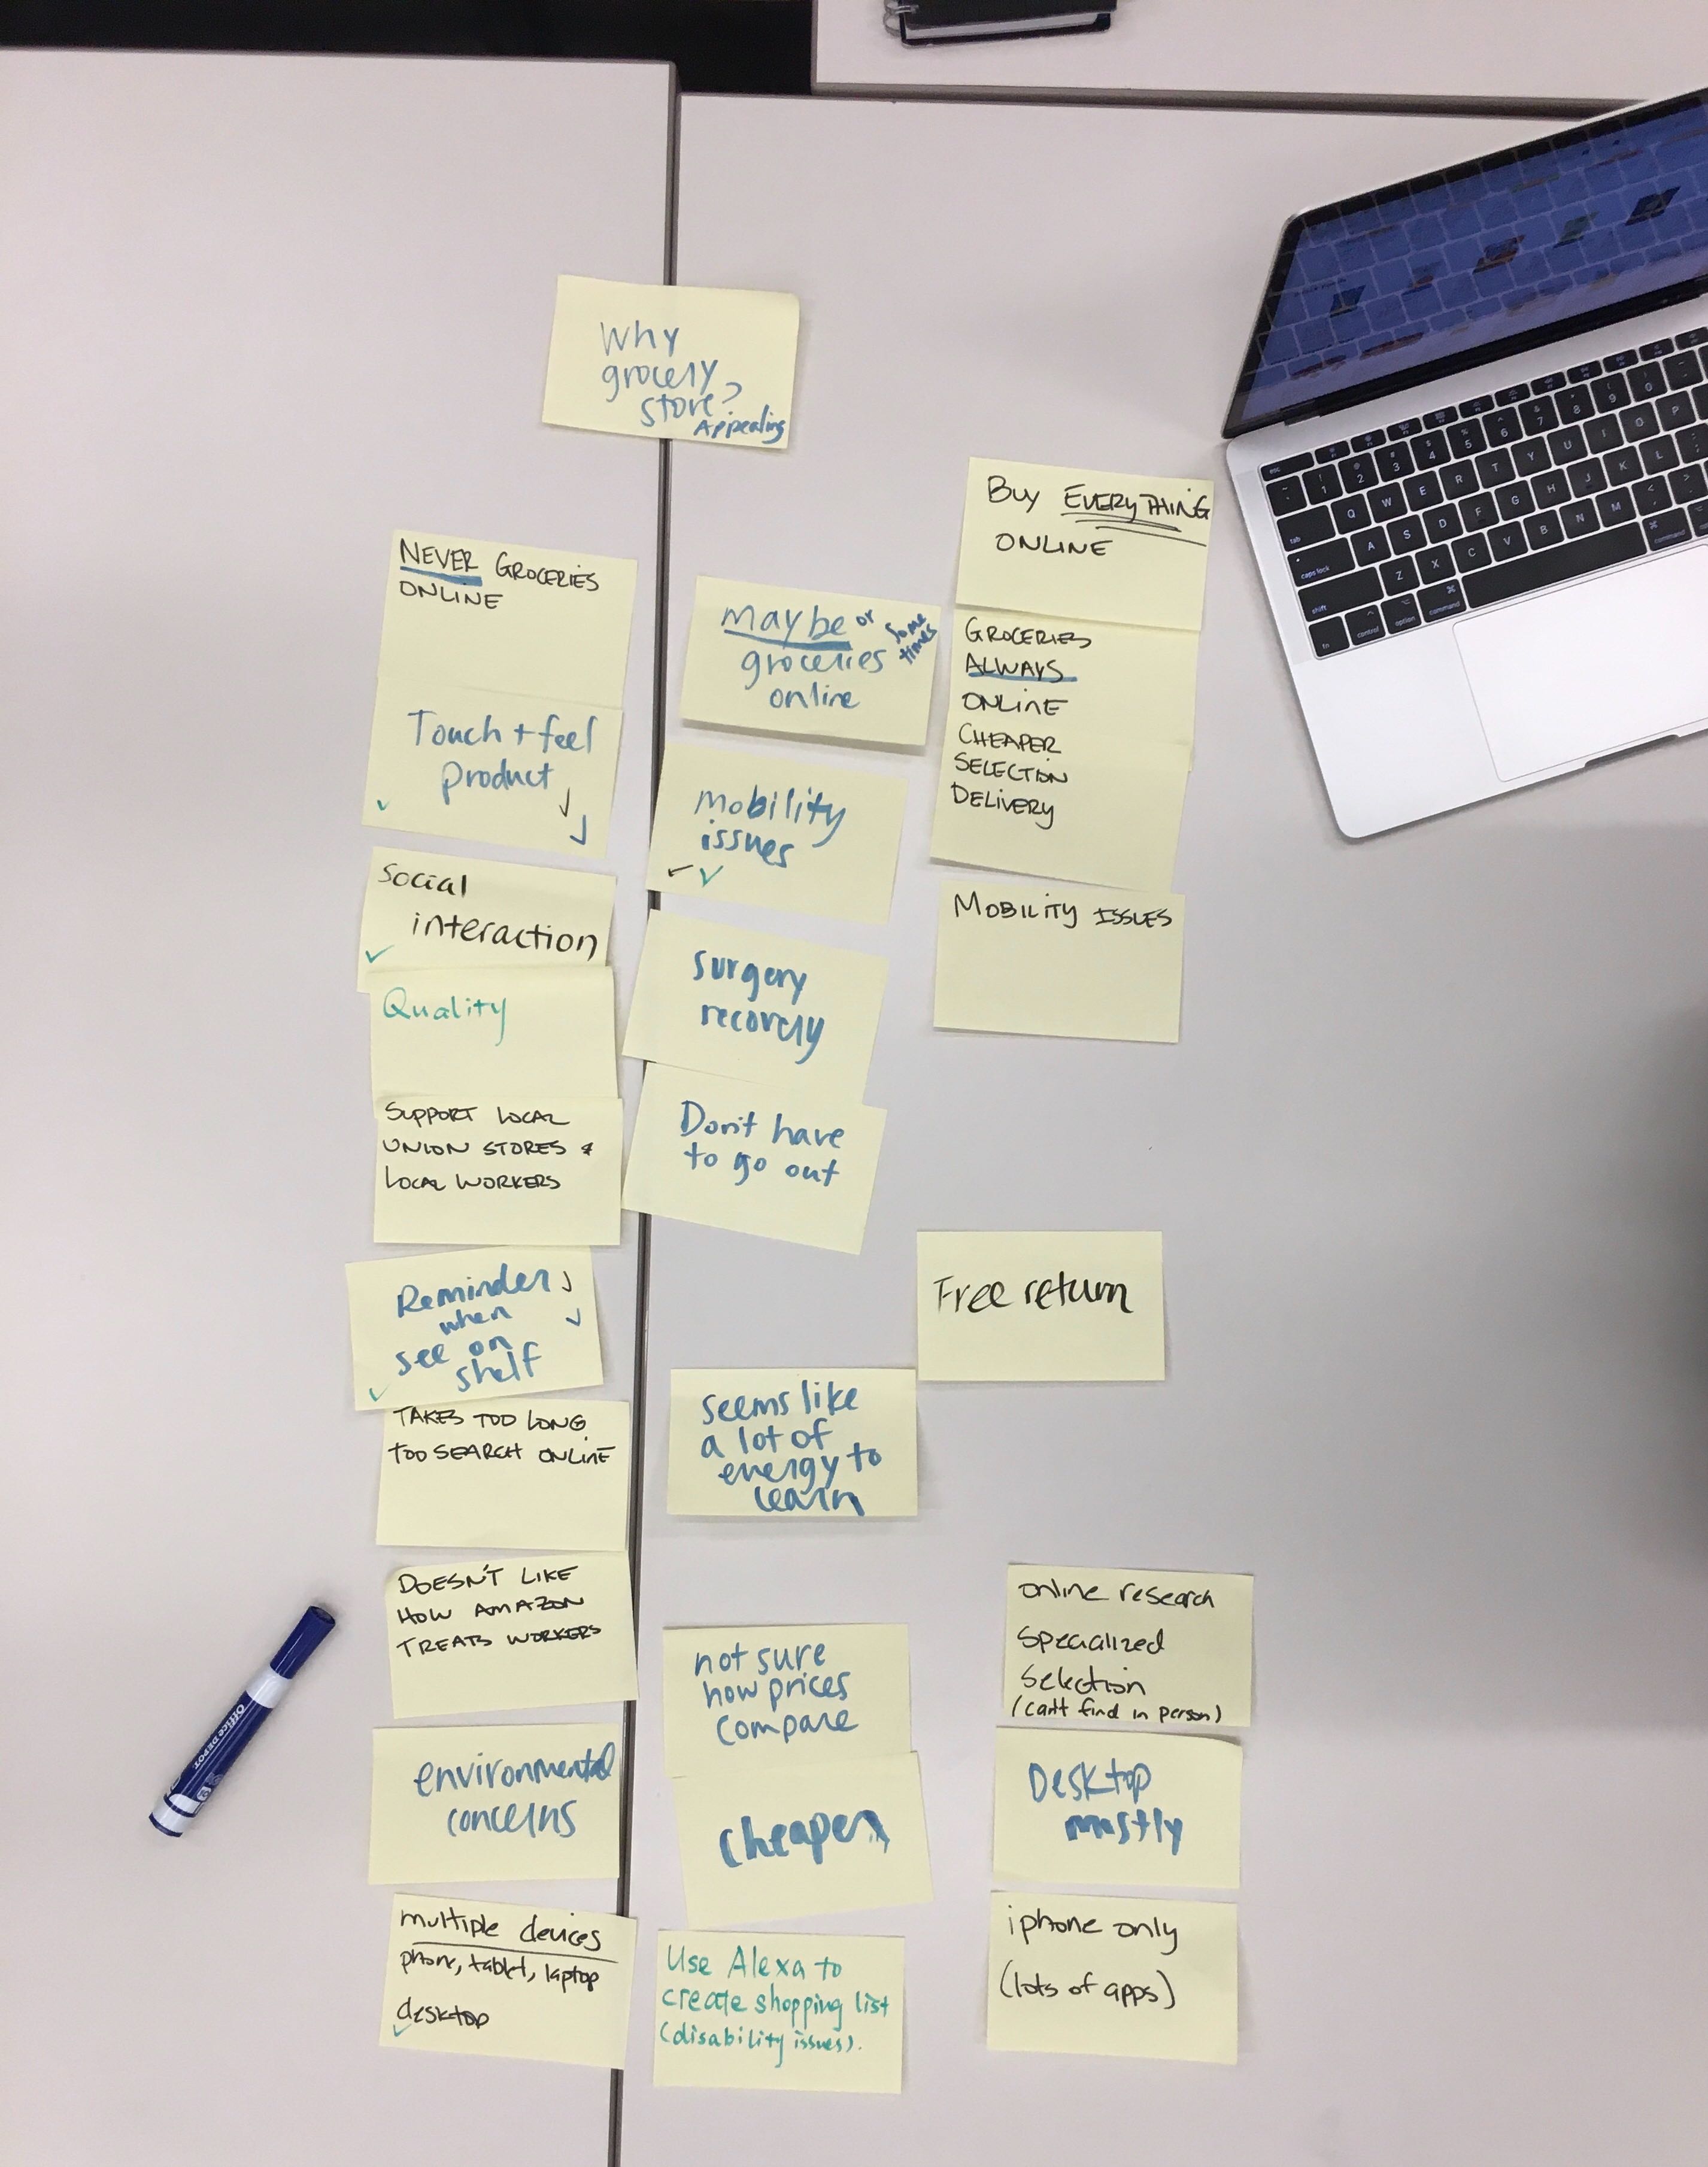 Why
grocery
store?
Appealing
NEVER GROCERIES
ONLINE
Touch + feel
product
Social
interaction
Quality
SUPPORT LOCAL
UNION STORES &
LOCAL WORKERS
Reminder
when
see on
shelf
TAKES TOO LONG
TOO SEARCH ONLINE
DOESN'T LIKE
HOW AMAZON
TREATS WORKERS
environmental
concerns
multiple devices
phone, tablet, laptop
desktop
maybe or some
times
groceries
online
mobility
issues
surgery
recovery
Don't have
to go out
seems like
a lot of
energy to
learn
not sure
how prices
compare
cheaper
Use Alexa to
create shopping list
(disability issues).
BUY EVERYTHING
ONLINE
GROCERIES
ALWAYS
ONLINE
CHEAPER
SELECTION
DELIVERY
MOBILITY ISSUES
Free return
online research
specialized
selection
(can't find in person)
Desktop
mostly
iphone only
(lots of apps)
Office DEPOT